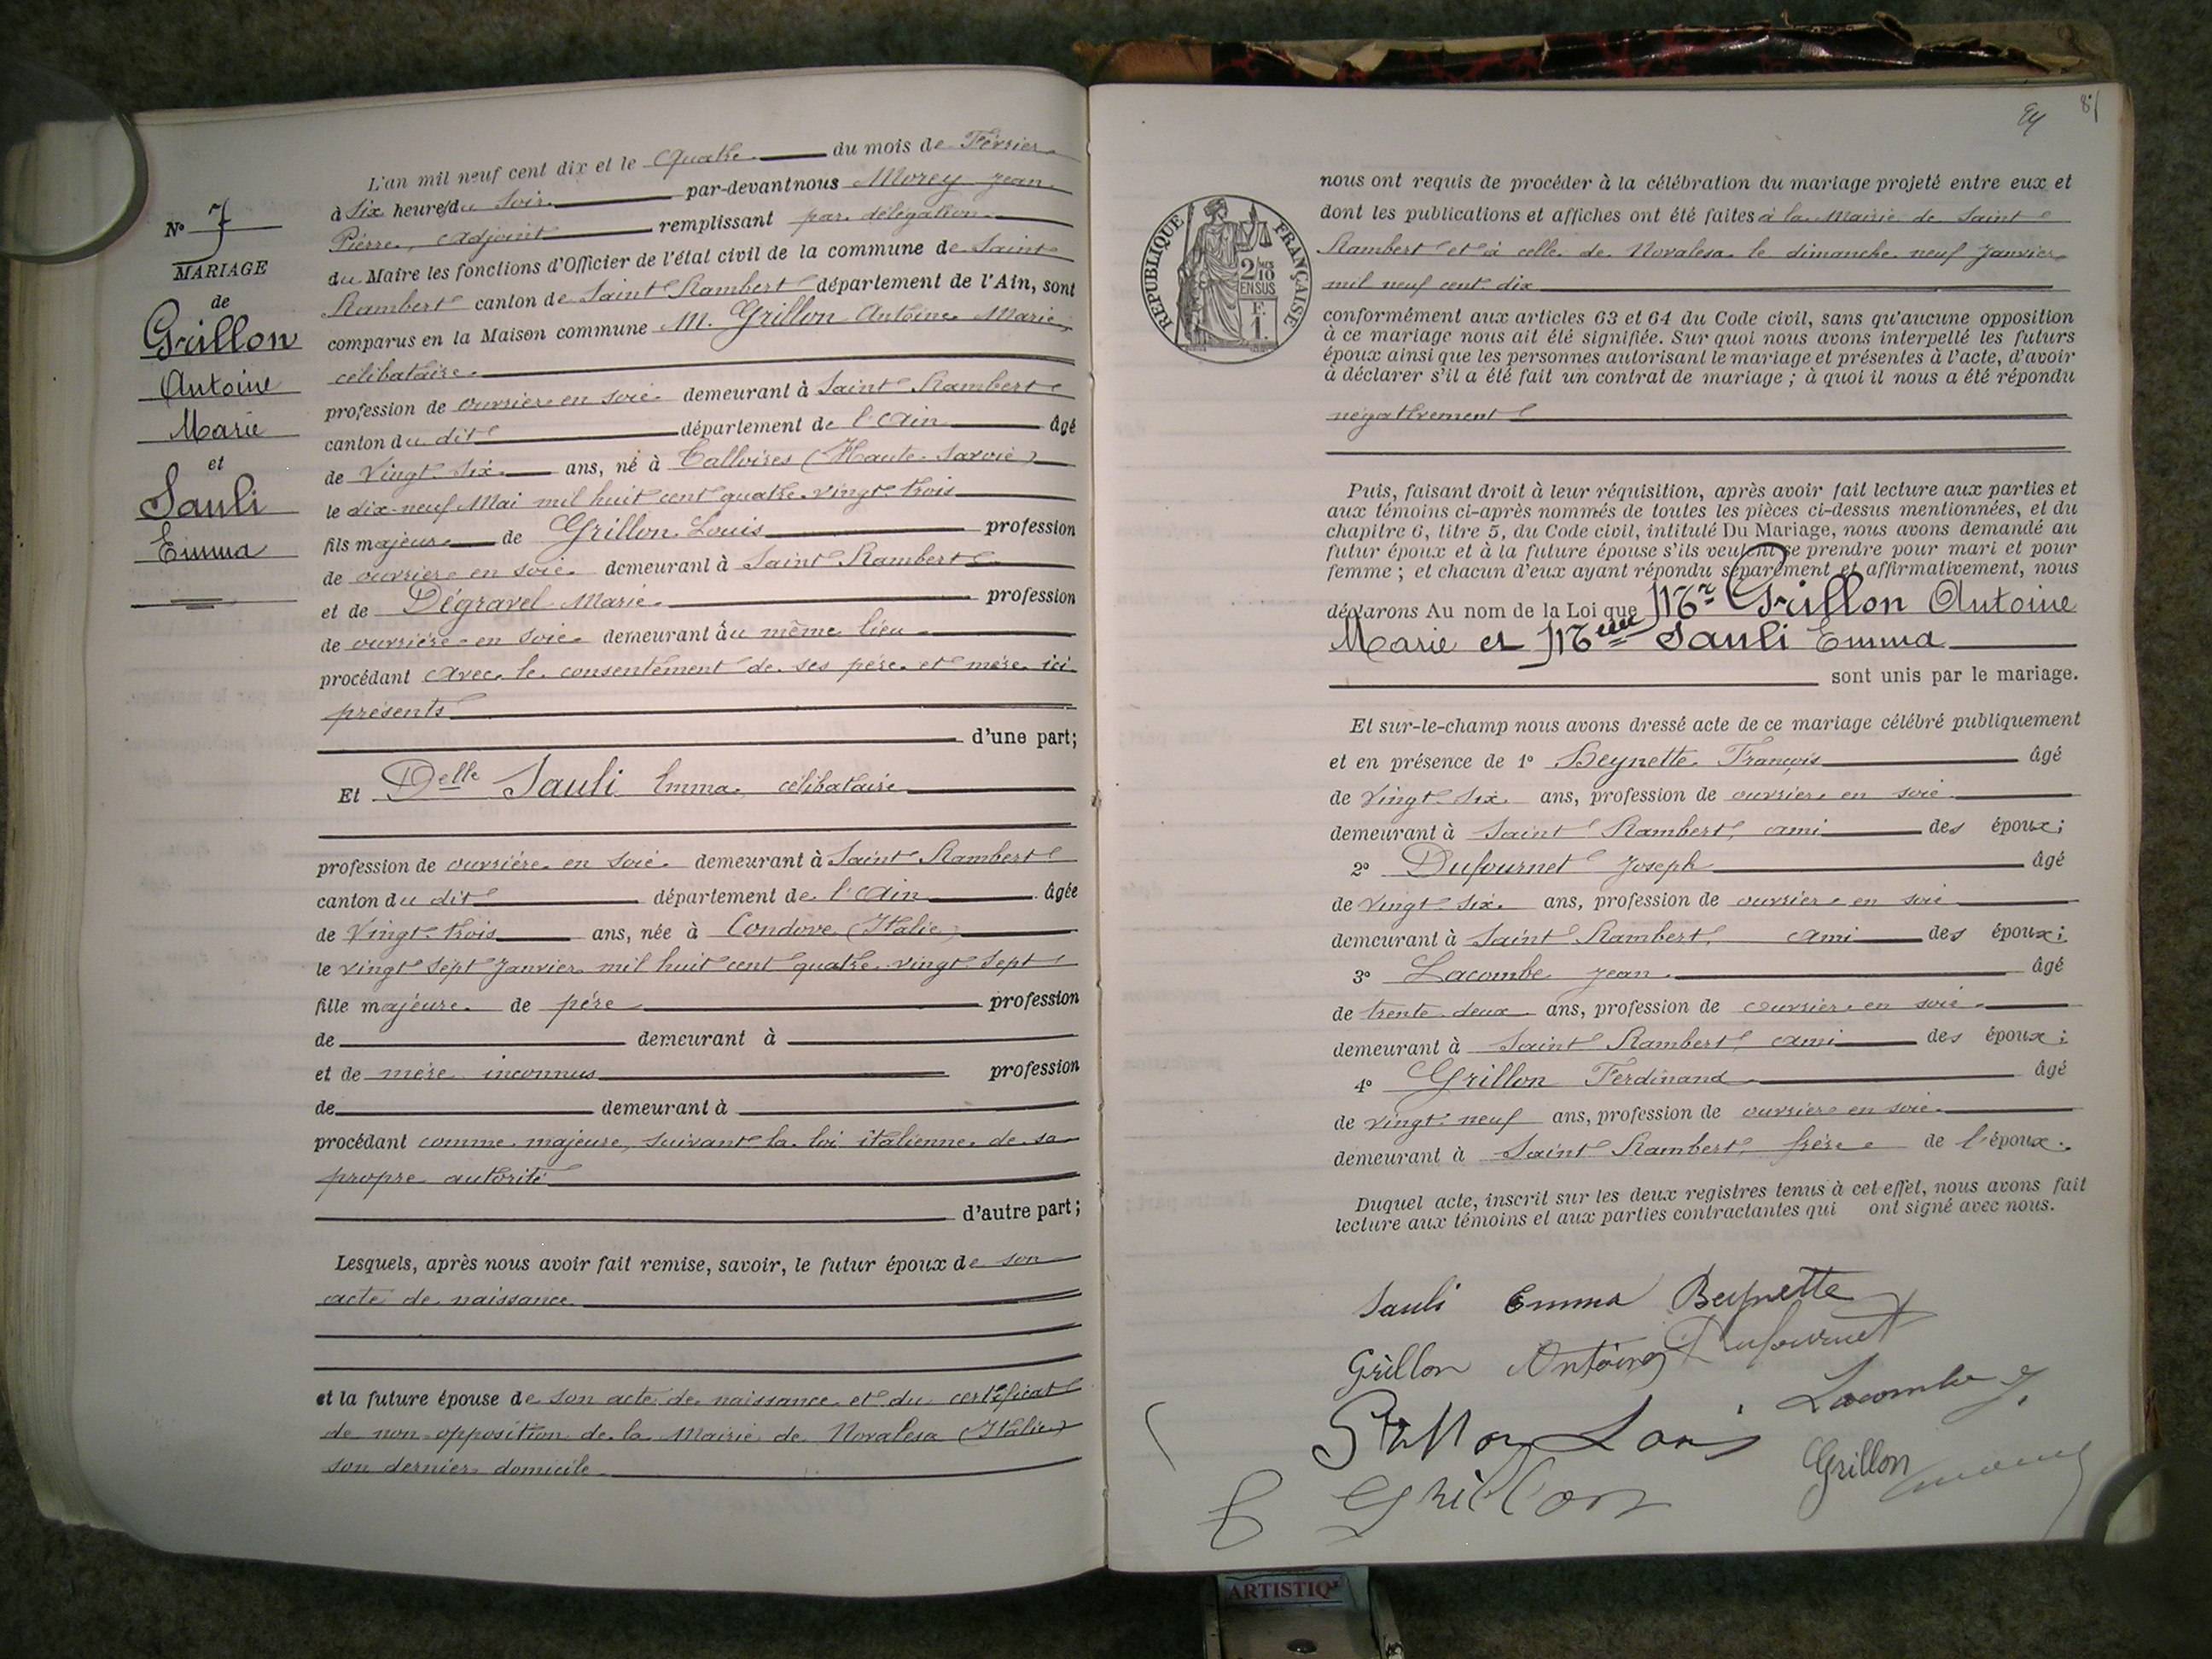 L'an mil neuf cent dix et le Quatre du mois de Février
à Six heures du Soir par-devant nous Morey Jean
Pierre, Adjoint remplissant par délégation
du Maire les fonctions d'Officier de l'état civil de la commune de Saint
Rambert canton de Saint Rambert département de l'Ain, sont
comparus en la Maison commune M. Grillon Antoine Marie,
célibataire
profession de ouvrier en soie demeurant à Saint Rambert
canton du dit département de l'Ain âgé
de Vingt Six ans, né à Talloires (Haute-Savoie)
le dix-neuf Mai mil huit cent quatre-vingt-trois
fils majeur de Grillon Louis profession
de ouvrier en soie demeurant à Saint Rambert
et de Dégravel Marie profession
de ouvrière en soie demeurant au même lieu
procédant avec le consentement de ses père et mère ici
présents
d'une part;
Et Delle Sauli Emma, célibataire
profession de ouvrière en soie demeurant à Saint Rambert
canton du dit département de l'Ain âgée
de Vingt-trois ans, née à Condove (Italie)
le vingt sept Janvier mil huit cent quatre-vingt-sept
fille majeure de père profession
de demeurant à
et de mère inconnus profession
de demeurant à
procédant comme majeure, suivant la loi italienne de sa
propre autorité
d'autre part;
Lesquels, après nous avoir fait remise, savoir, le futur époux de son
acte de naissance
et la future épouse de son acte de naissance et du certificat
de non-opposition de la Mairie de Novalesa (Italie)
son dernier domicile
N° 7
MARIAGE
de
Grillon
Antoine
Marie
et
Sauli
Emma
84
81
RÉPUBLIQUE FRANÇAISE
2/10
EN SUS
F.
1.
nous ont requis de procéder à la célébration du mariage projeté entre eux et
dont les publications et affiches ont été faites à la Mairie de Saint
Rambert et à celle de Novalesa le dimanche neuf Janvier
mil neuf cent dix
conformément aux articles 63 et 64 du Code civil, sans qu'aucune opposition
à ce mariage nous ait été signifiée. Sur quoi nous avons interpellé les futurs
époux ainsi que les personnes autorisant le mariage et présentes à l'acte, d'avoir
à déclarer s'il a été fait un contrat de mariage; à quoi il nous a été répondu
négativement
Puis, faisant droit à leur réquisition, après avoir fait lecture aux parties et
aux témoins ci-après nommés de toutes les pièces ci-dessus mentionnées, et du
chapitre 6, titre 5, du Code civil, intitulé Du Mariage, nous avons demandé au
futur époux et à la future épouse s'ils veulent se prendre pour mari et pour
femme; et chacun d'eux ayant répondu séparément et affirmativement, nous
déclarons Au nom de la Loi que Mr Grillon Antoine
Marie et Melle Sauli Emma
sont unis par le mariage.
Et sur-le-champ nous avons dressé acte de ce mariage célébré publiquement
et en présence de 1° Beynette François âgé
de Vingt-Six ans, profession de ouvrier en soie
demeurant à Saint Rambert, ami des époux;
2° Dufournet Joseph âgé
de Vingt-Six ans, profession de ouvrier en soie
demeurant à Saint Rambert, ami des époux;
3° Lacombe Jean âgé
de trente-deux ans, profession de ouvrier en soie
demeurant à Saint Rambert, ami des époux;
4° Grillon Ferdinand âgé
de vingt-neuf ans, profession de ouvrier en soie
demeurant à Saint Rambert, frère de l'époux.
Duquel acte, inscrit sur les deux registres tenus à cet effet, nous avons fait
lecture aux témoins et aux parties contractantes qui ont signé avec nous.
Sauli Emma Beynette
Grillon Antoine Dufournet
Grillon Louis Lacombe J.
Grillon Grillon
ARTISTIQ